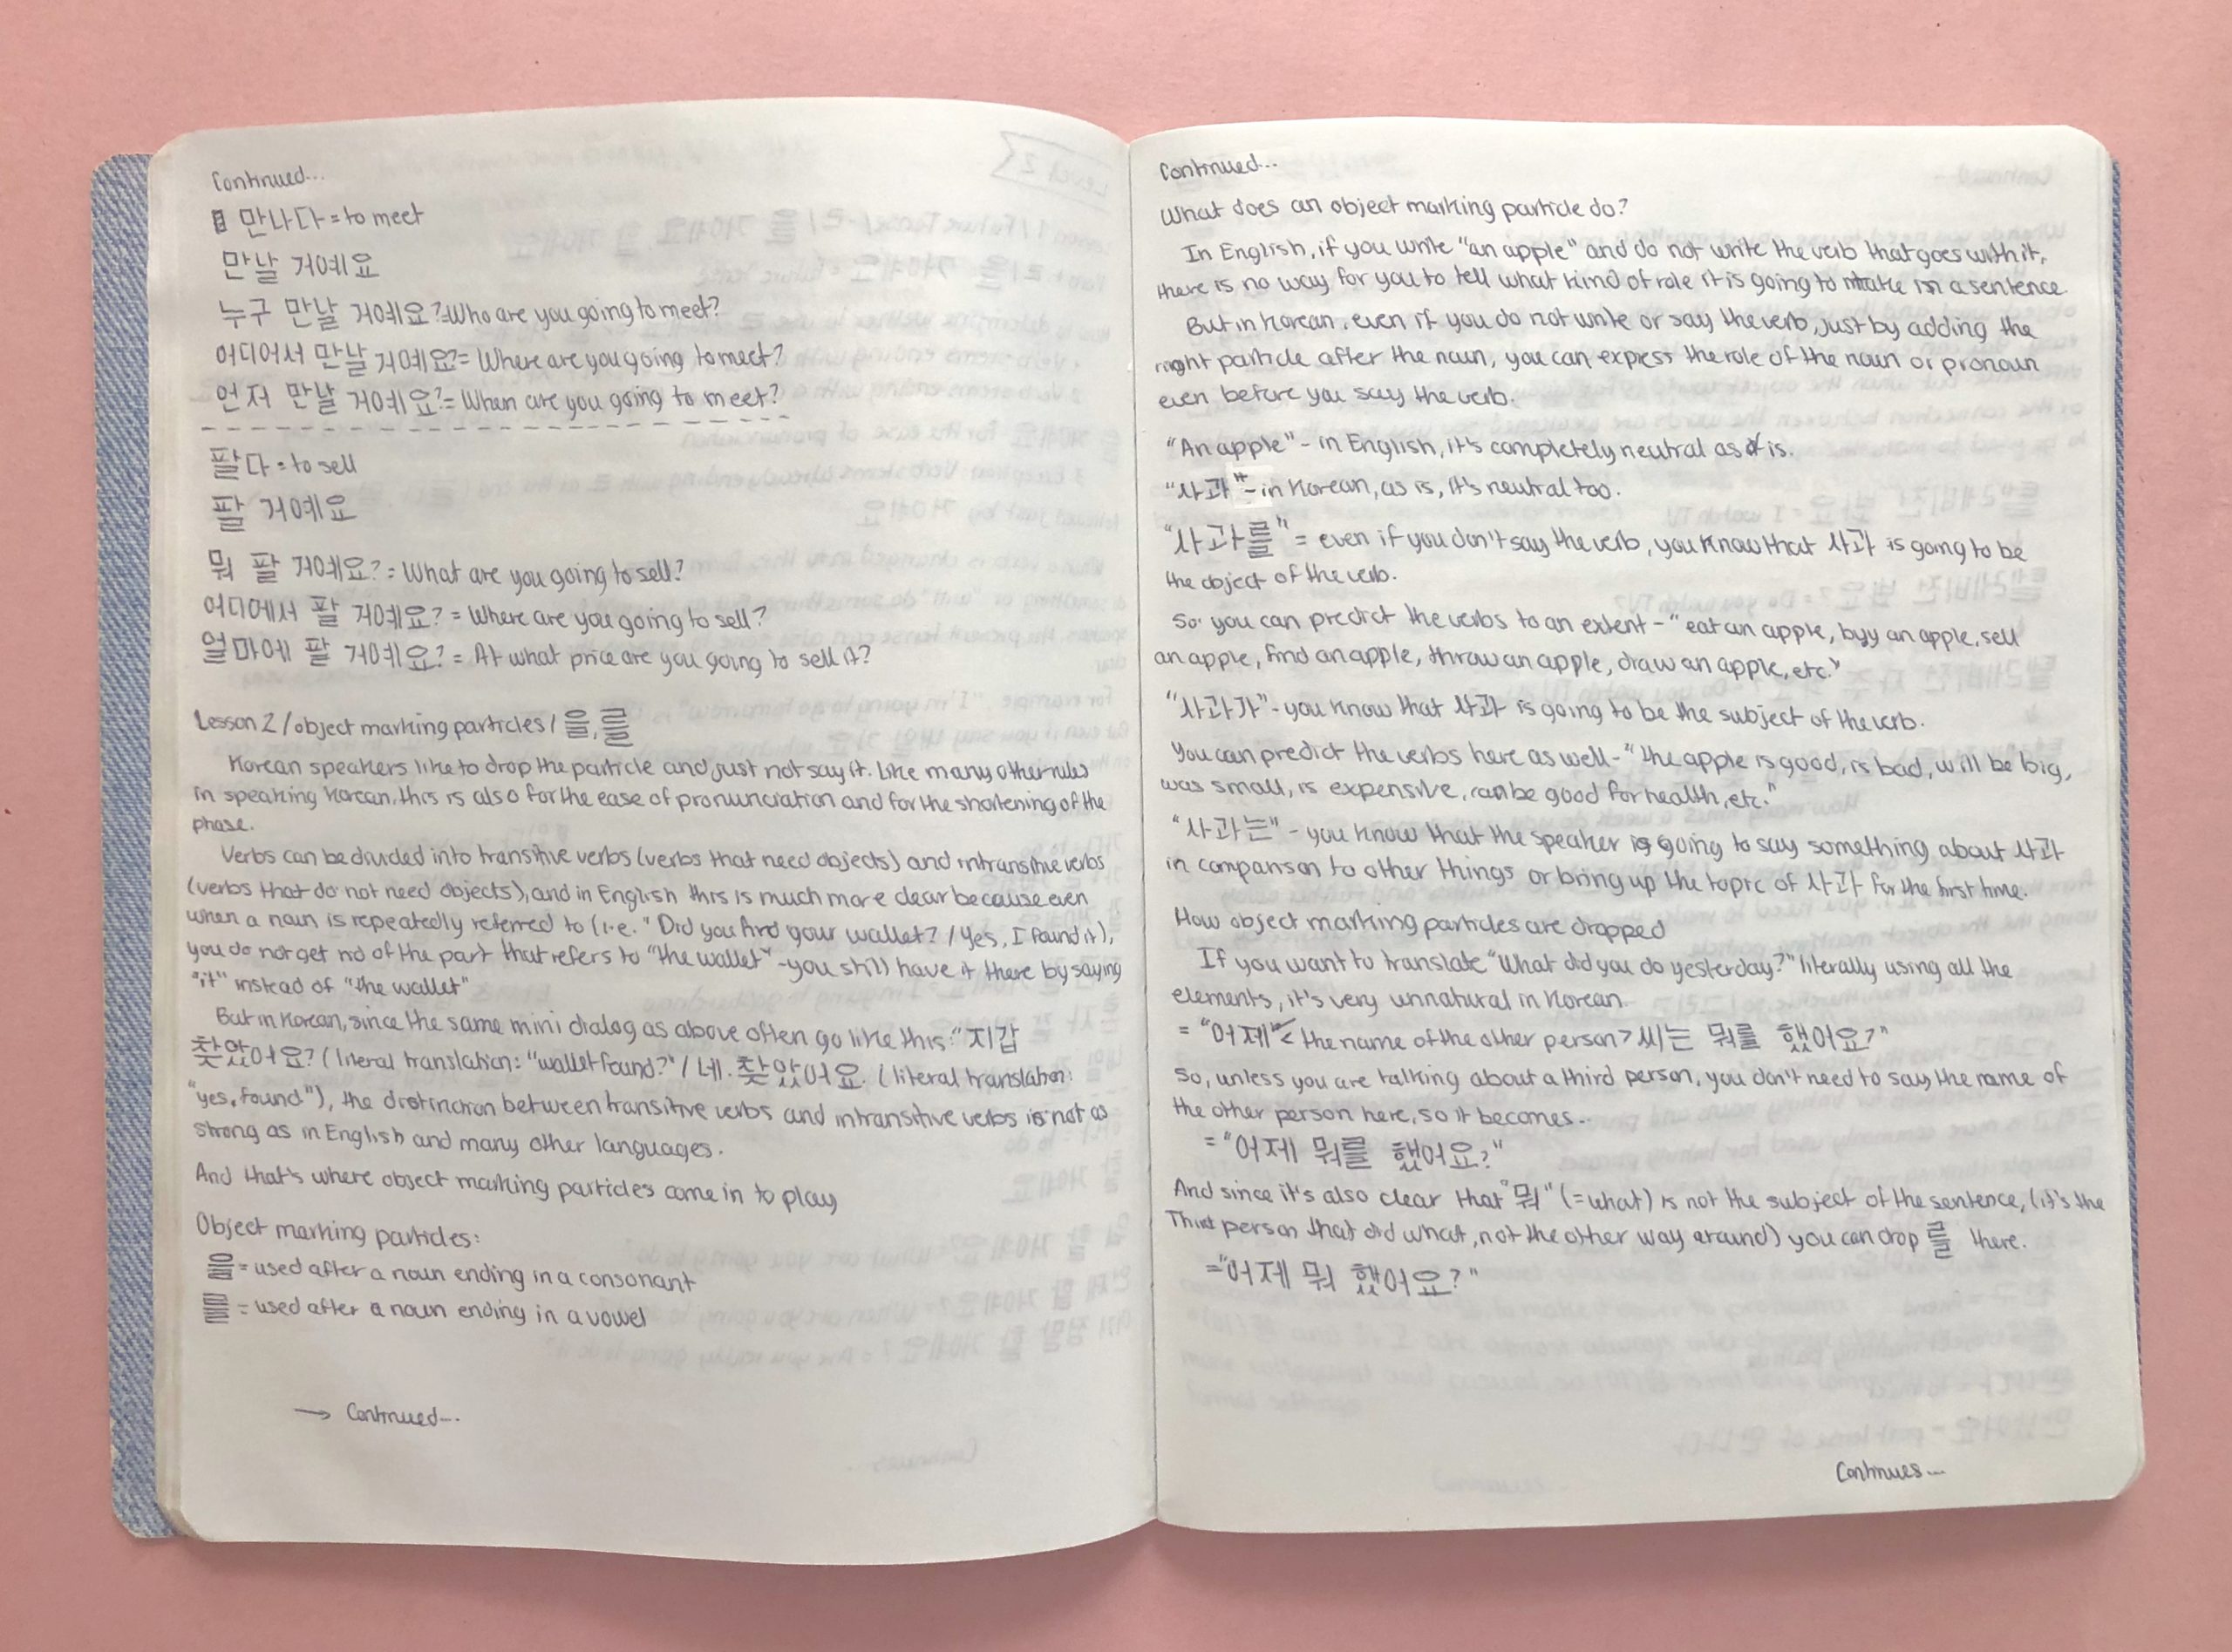 Continued...
만나다 = to meet
만날 거예요
누구 만날 거예요? = Who are you going to meet?
어디어서 만날 거예요? = Where are you going to meet?
언저 만날 거예요? = When are you going to meet?
팔다 = to sell
팔 거예요
뭐 팔 거예요? = What are you going to sell?
어디에서 팔 거예요? = Where are you going to sell?
얼마에 팔 거예요? = At what price are you going to sell it?
Lesson 2 / object marking particles / 을, 를
Korean speakers like to drop the particle and just not say it. Like many other rules
in speaking Korean, this is also for the ease of pronunciation and for the shortening of the
phase.
Verbs can be divided into transitive verbs (verbs that need objects) and intransitive verbs
(verbs that do not need objects), and in English this is much more clear because even
when a noun is repeatedly referred to (i.e. "Did you find your wallet? / Yes, I found it),
you do not get rid of the part that refers to "the wallet" - you still have it there by saying
"it" instead of "the wallet"
But in Korean, since the same mini dialog as above often go like this: "지갑
찾았어요? (literal translation: "wallet found?" / 네. 찾았어요. (literal translation:
"yes, found"), the distinction between transitive verbs and intransitive verbs is not as
strong as in English and many other languages.
And that's where object marking particles come in to play
Object marking particles:
을 = used after a noun ending in a consonant
를 = used after a noun ending in a vowel
→ Continued...
Continued...
What does an object marking particle do?
In English, if you write "an apple" and do not write the verb that goes with it,
there is no way for you to tell what kind of role it is going to take in a sentence.
But in Korean, even if you do not write or say the verb, just by adding the
right particle after the noun, you can express the role of the noun or pronoun
even before you say the verb.
"An apple" - in English, it's completely neutral as is.
"사과" - in Korean, as is, it's neutral too.
"사과를" = even if you don't say the verb, you know that 사과 is going to be
the object of the verb.
So you can predict the verbs to an extent - "eat an apple, byy an apple, sell
an apple, find an apple, throw an apple, draw an apple, etc."
"사과가" - you know that 사과 is going to be the subject of the verb.
You can predict the verbs here as well - "the apple is good, is bad, will be big,
was small, is expensive, can be good for health, etc."
"사과는" - you know that the speaker is going to say something about 사과
in comparison to other things or bring up the topic of 사과 for the first time.
How object marking particles are dropped
If you want to translate "What did you do yesterday?" literally using all the
elements, it's very unnatural in Korean.
= "어제 < the name of the other person> 씨는 뭐를 했어요?"
So, unless you are talking about a third person, you don't need to say the name of
the other person here, so it becomes...
= "어제 뭐를 했어요?"
And since it's also clear that "뭐" (=what) is not the subject of the sentence, (it's the
person that did what, not the other way around) you can drop 를 there.
= "어제 뭐 했어요?"
Continues...